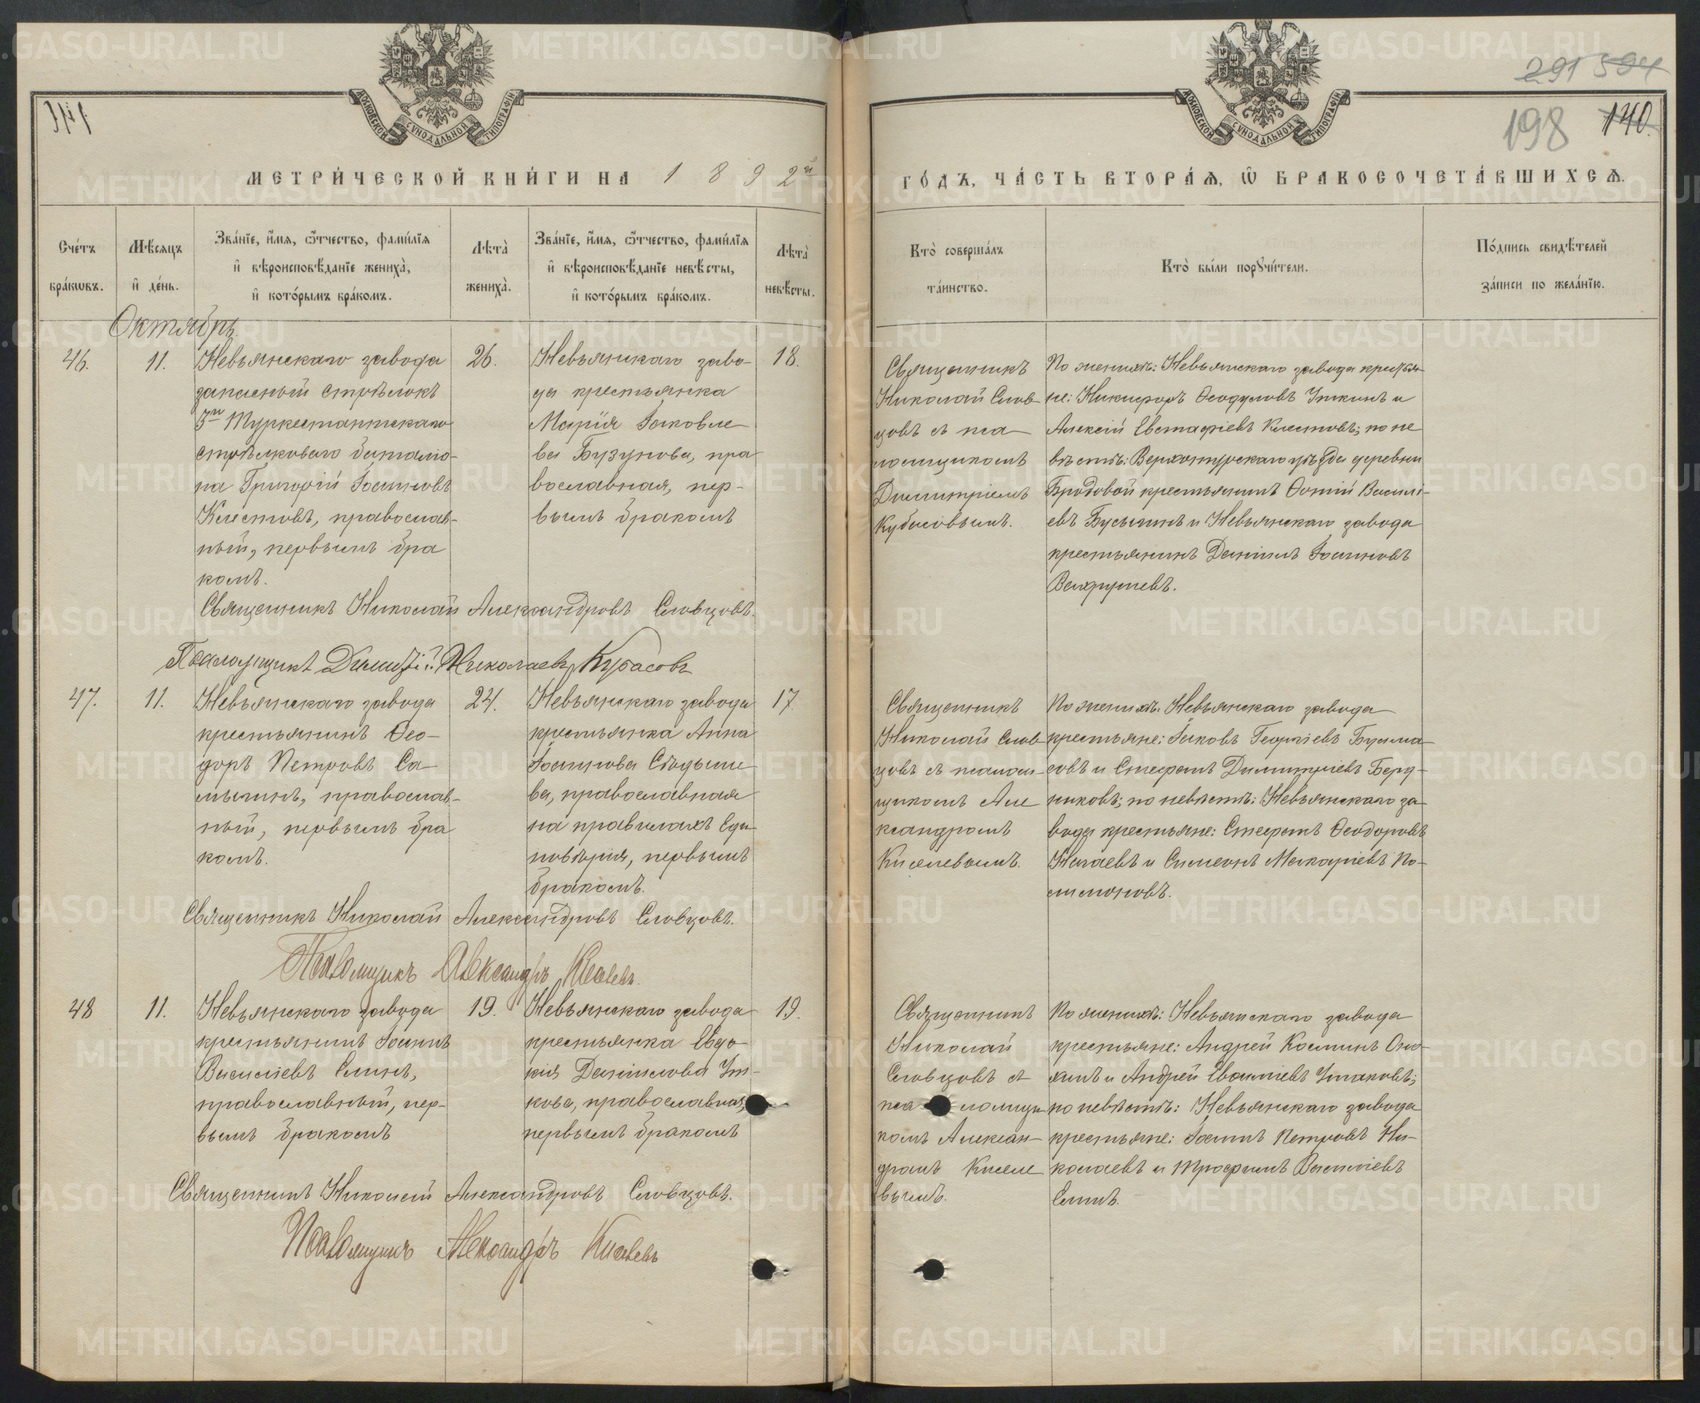 291 594
198 140.
МЕТРИ́ЧЕСКОЙ КНИ́ГИ НА 1892й
ГО́ДЪ, ЧА́СТЬ ВТОРА́Я, Ѡ БРАКОСОЧЕТА́ВШИХСЯ.
Сче́тъ бра́ковъ.
Мѣ́сяцъ и де́нь.
Зва́нїе, и҆́мя, ѻ҆́тчество, фами́лїя
и҆ вѣроисповѣ́данїе жениха̀,
и҆ кото́рымъ бра́комъ.
Лѣта̀ жениха̀.
Зва́нїе, и҆́мя, ѻ҆́тчество, фами́лїя
и҆ вѣроисповѣ́данїе невѣ́сты,
и҆ кото́рымъ бра́комъ.
Лѣта̀ невѣ́сты.
Кто̀ соверша́лъ та́инство.
Кто̀ бы́ли порꙋчи́тели.
По́дпись свидѣ́телей
за́писи по жела́нїю.
Октябрь
46.
11.
Невьянскаго завода
запасный стрѣлокъ
5го Туркестантскаго
стрѣлковаго баталіо-
на Григорій Іоанновъ
Клестовъ, православ-
ный, первымъ бра
комъ.
26.
Невьянскаго заво-
да крестьянка
Марія Іаковле-
ва Бузунова, пра
вославная, пер-
вымъ бракомъ
18.
Священникъ
Николай Слов
цовъ съ пса
ломщикомъ
Димитріемъ
Кубасовымъ.
По женихѣ: Невьянскаго завода крестья-
не: Никифоръ Ѳеодуловъ Уткинъ и
Алексій Евстафіевъ Клестовъ; по не
вѣстѣ: Верхотурскаго уѣзда деревни
Бродовой крестьянинъ Ѳотій Василі-
евъ Бусыгинъ и Невьянскаго завода
крестьянинъ Даніилъ Іоанновъ
Вахрушевъ.
Священникъ Николай Александровъ Словцовъ.
Псаломщикъ Димитрій Николаевъ Кубасовъ
47.
11.
Невьянскаго завода
крестьянинъ Ѳео-
доръ Петровъ Са-
мыгинъ, православ-
ный, первымъ бра
комъ.
24.
Невьянскаго завода
крестьянка Анна
Іоаннова Сѣдыше
ва, православная
на правилахъ Еди
новѣрія, первымъ
бракомъ.
17
Священникъ
Николай Слов
цовъ съ псалом-
щикомъ Але
ксандромъ
Киселевымъ.
По женихѣ: Невьянскаго завода
крестьяне: Іаковъ Георгіевъ Бурма
совъ и Стефанъ Димитріевъ Берд-
никовъ; по невѣстѣ: Невьянскаго за
вода крестьяне: Стефанъ Ѳеодоровъ
Нагаевъ и Симеонъ Макаріевъ По-
лимоновъ.
Священникъ Николай Александровъ Словцовъ.
Псаломщикъ Александръ Киселевъ.
48
11.
Невьянскаго завода
крестьянинъ Іоаннъ
Василіевъ Елинъ,
православный, пер-
вымъ бракомъ
19.
Невьянскаго завода
крестьянка Евдо-
кія Даніилова Ут-
кова, православная,
первымъ бракомъ
19.
Священникъ
Николай
Словцовъ съ
пса ломщи
комъ Алексан-
дромъ Киселе
вымъ.
По женихѣ: Невьянскаго завода
крестьяне: Андрей Косминъ
и Андрей Ушаковъ;
по невѣстѣ: Невьянскаго завода
крестьяне: Іоаннъ Петровъ Ни-
колаевъ и Трофимъ Василіевъ
Елинъ.
Священникъ Николай Александровъ Словцовъ.
Псаломщикъ Александръ Киселевъ
METRIKI.GASO-URAL.RU